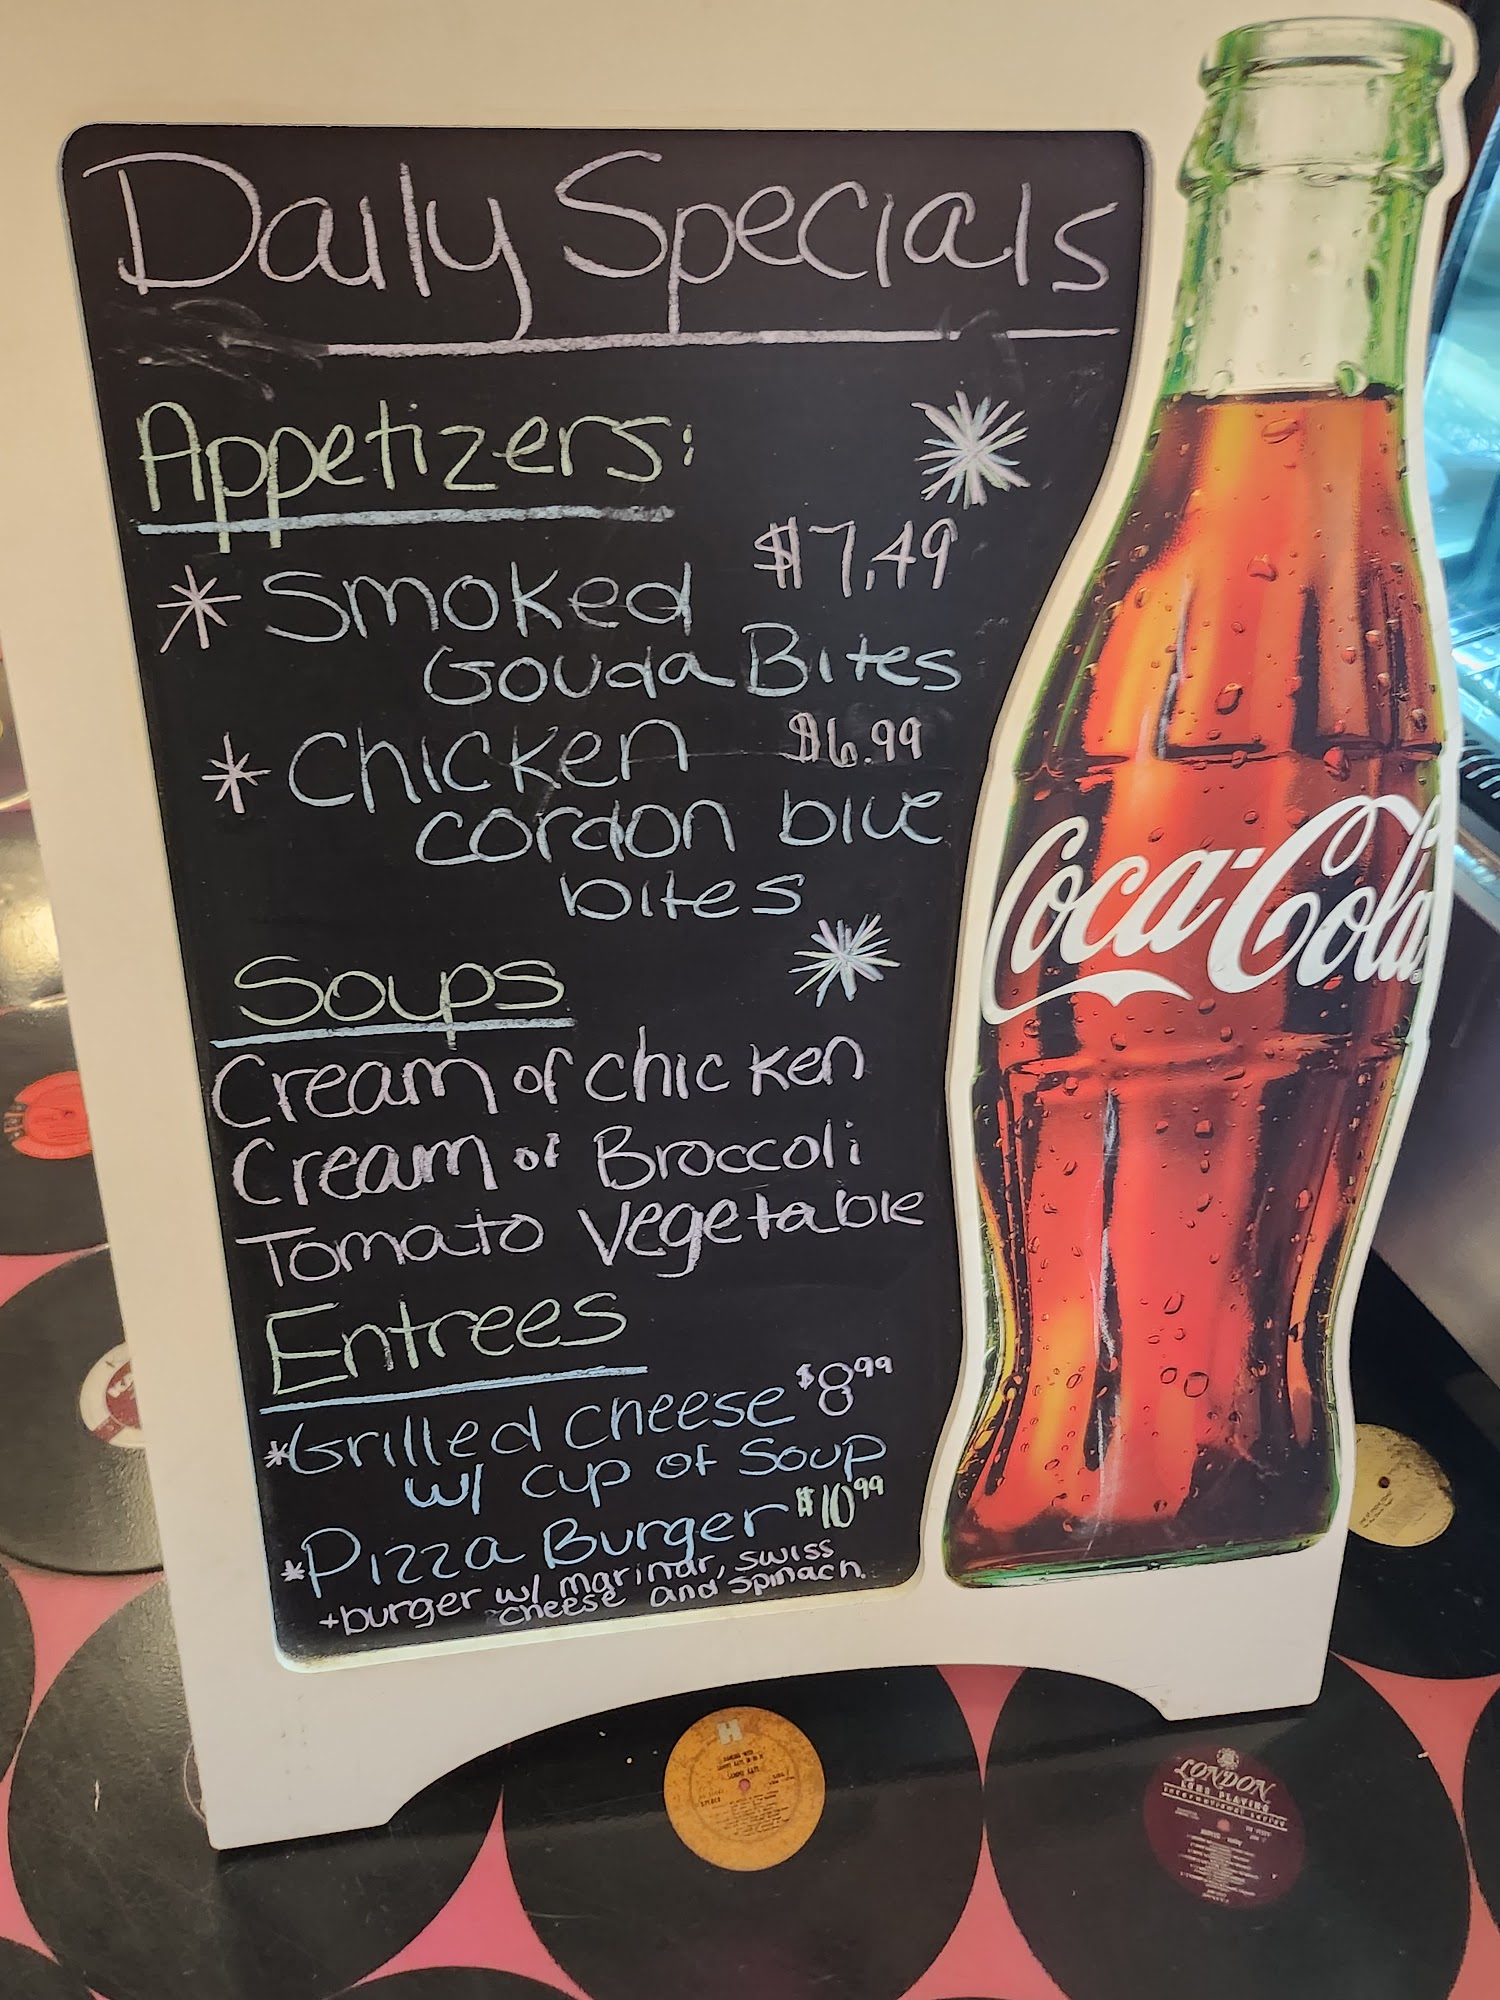 Daily Specials
Appetizers:
* Smoked $7.49
Gouda Bites
* Chicken $6.99
cordon blue
bites
Soups
Cream of chicken
Cream of Broccoli
Tomato Vegetable
Entrees
*Grilled cheese $8.99
w/ cup of Soup
*Pizza Burger $10.99
+burger w/ marinar, swiss
cheese and spinach.
Coca-Cola
H
LONDON
LONG PLAYING
international series